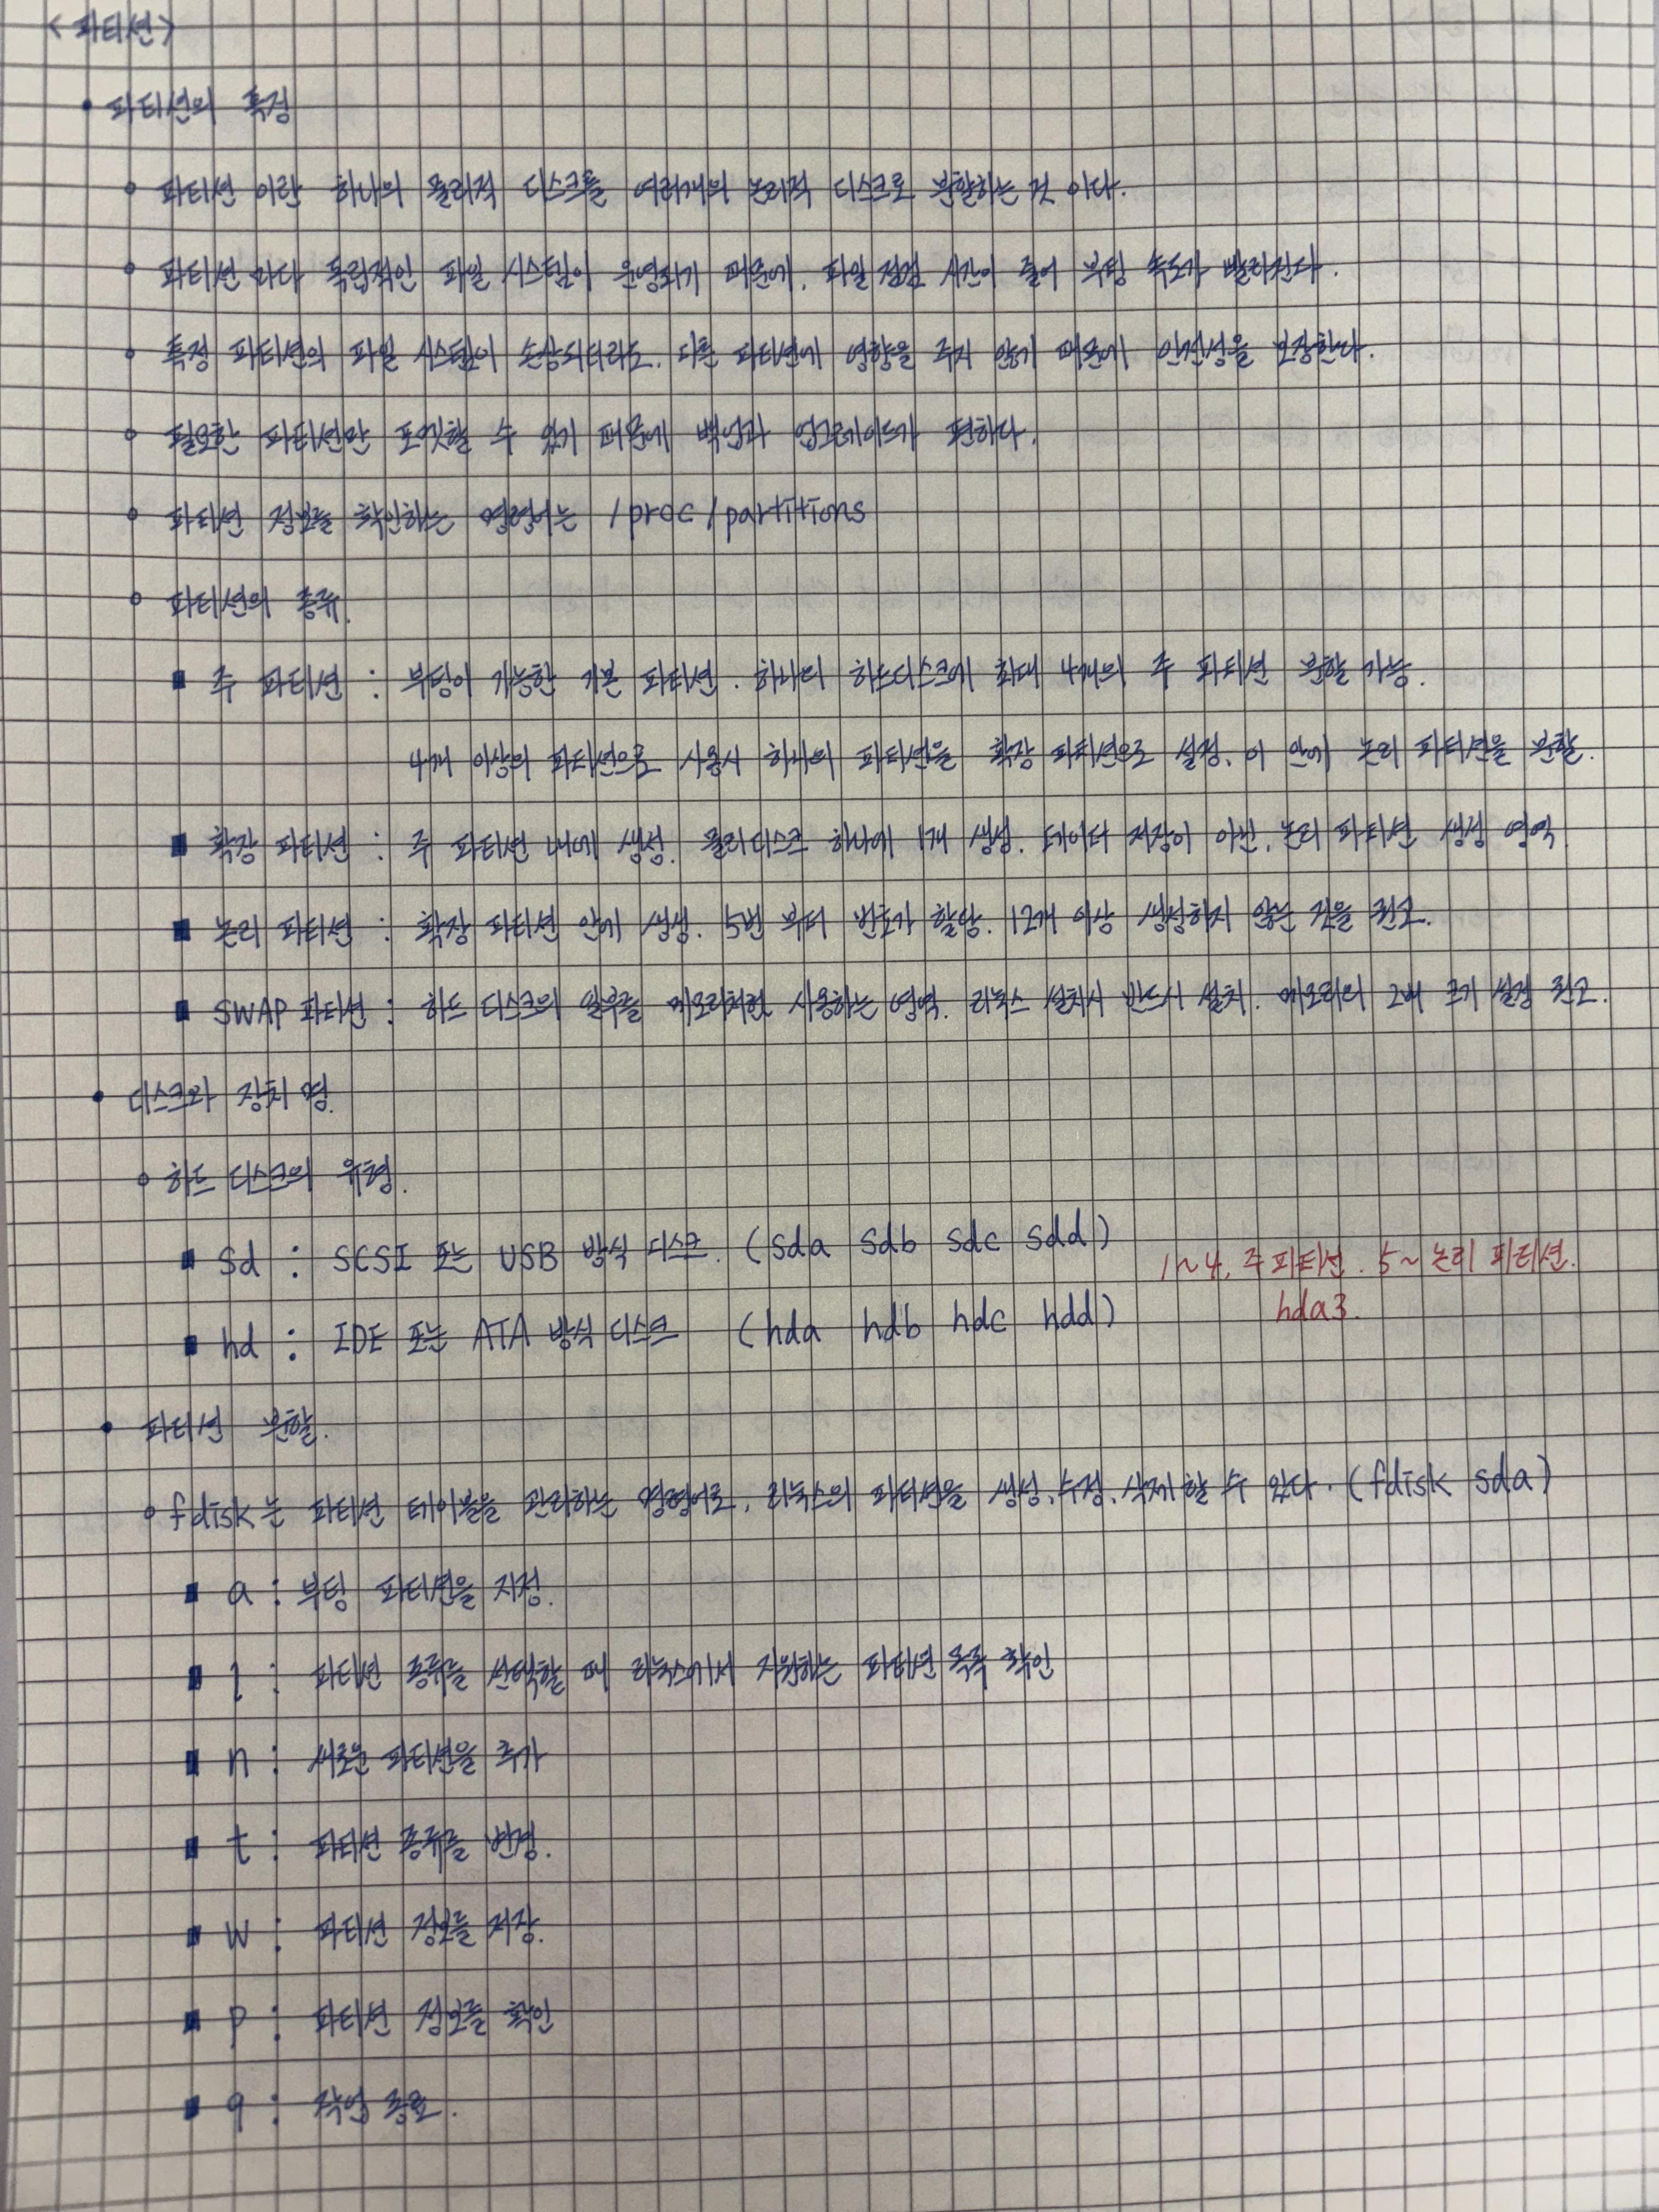 <파티션>
• 파티션의 특징
∘ 파티션 이란 하나의 물리적 디스크를 여러개의 논리적 디스크로 분할하는 것 이다.
∘ 파티션 마다 독립적인 파일 시스템이 운영되기 때문에, 파일 점검 시간이 줄어 부팅 속도가 빨라진다.
∘ 특정 파티션의 파일 시스템이 손상되더라도, 다른 파티션에 영향을 주지 않기 때문에 안전성을 보장한다.
∘ 필요한 파티션만 포맷할 수 있기 때문에 백업과 업그레이드가 편하다.
∘ 파티션 정보를 확인하는 명령어는 /proc/partitions
∘ 파티션의 종류.
▪ 주 파티션 : 부팅이 가능한 기본 파티션. 하나의 하드디스크에 최대 4개의 주 파티션 분할 가능.
4개 이상의 파티션으로 사용시 하나의 파티션을 확장 파티션으로 설정, 이 안에 논리 파티션을 분할.
▪ 확장 파티션 : 주 파티션 내에 생성. 물리디스크 하나에 1개 생성. 데이터 저장이 아닌, 논리 파티션 생성 영역
▪ 논리 파티션 : 확장 파티션 안에 생성. 5번 부터 번호가 할당. 12개 이상 생성하지 않는 것을 권고.
▪ SWAP 파티션 : 하드 디스크의 일부를 메모리처럼 사용하는 영역. 리눅스 설치시 반드시 설치. 메모리의 2배 크기 설정 권고.
• 디스크와 장치 명.
∘ 하드 디스크의 유형.
▪ sd : SCSI 또는 USB 방식 디스크. (sda sdb sdc sdd)
1~4, 주 파티션. 5~ 논리 파티션.
hda3.
▪ hd : IDE 또는 ATA 방식 디스크 (hda hdb hdc hdd)
• 파티션 분할.
∘ fdisk는 파티션 테이블을 관리하는 명령어로, 리눅스의 파티션을 생성, 수정, 삭제 할 수 있다. (fdisk sda)
▪ a : 부팅 파티션을 지정.
▪ l : 파티션 종류를 선택할 때 리눅스에서 지원하는 파티션 목록 확인
▪ n : 새로운 파티션을 추가
▪ t : 파티션 종류를 변경.
▪ w : 파티션 정보를 저장.
▪ p : 파티션 정보를 확인
▪ q : 작업 종료.